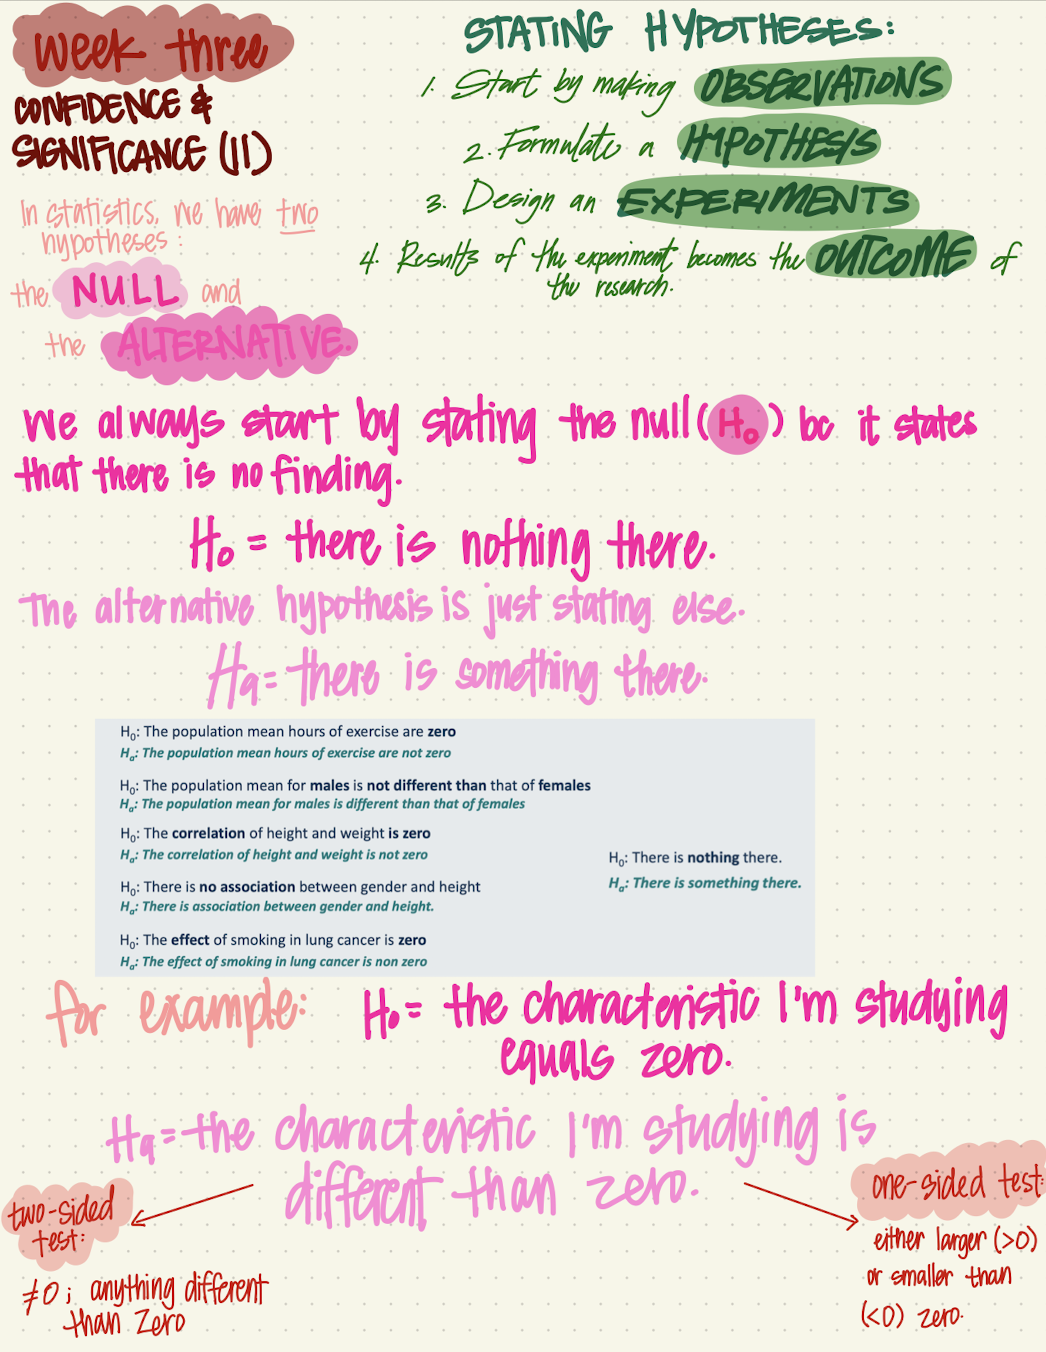 week three
CONFIDENCE &
SIGNIFICANCE (II)
In statistics, we have two
hypotheses:
the NULL and
the ALTERNATIVE.
STATING HYPOTHESES:
1. Start by making OBSERVATIONS
2. Formulate a HYPOTHESIS
3. Design an EXPERIMENTS
4. Results of the experiment becomes the OUTCOME of
the research.
We always start by stating the null (H₀) bc it states
that there is no finding.
H₀ = there is nothing there.
The alternative hypothesis is just stating else.
Ha = there is something there.
H₀: The population mean hours of exercise are zero
Hₐ: The population mean hours of exercise are not zero
H₀: The population mean for males is not different than that of females
Hₐ: The population mean for males is different than that of females
H₀: The correlation of height and weight is zero
Hₐ: The correlation of height and weight is not zero
H₀: There is no association between gender and height
Hₐ: There is association between gender and height.
H₀: The effect of smoking in lung cancer is zero
Hₐ: The effect of smoking in lung cancer is non zero
H₀: There is nothing there.
Hₐ: There is something there.
for example: H₀ = the characteristic I'm studying
equals zero.
Ha = the characteristic I'm studying is
different than zero.
two-sided
test:
≠0; anything different
than zero
one-sided test:
either larger (>0)
or smaller than
(<0) zero.